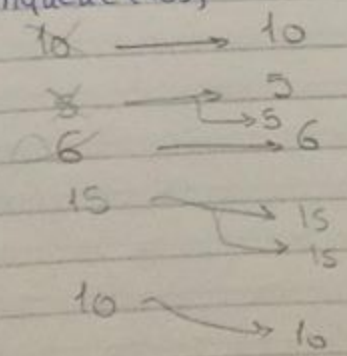 10 → 10
5 → 5
→ 5
6 → 6
15 → 15
→ 15
10 → 10